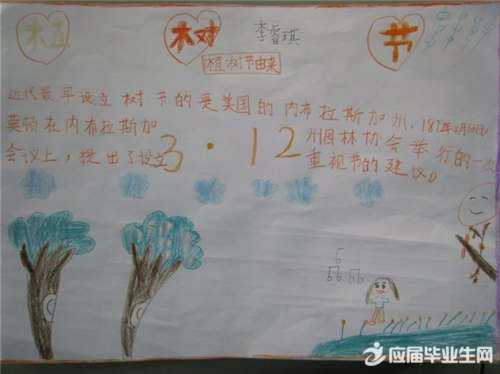 植 树 李睿琪 节
植树节由来
近代最早设立树节的是美国的内布拉斯加州。1872年4月10日,
莫顿在内布拉斯加 州园林协会举行的一次
会议上,提出了设立 3·12 重视节的建议。
应届毕业生网